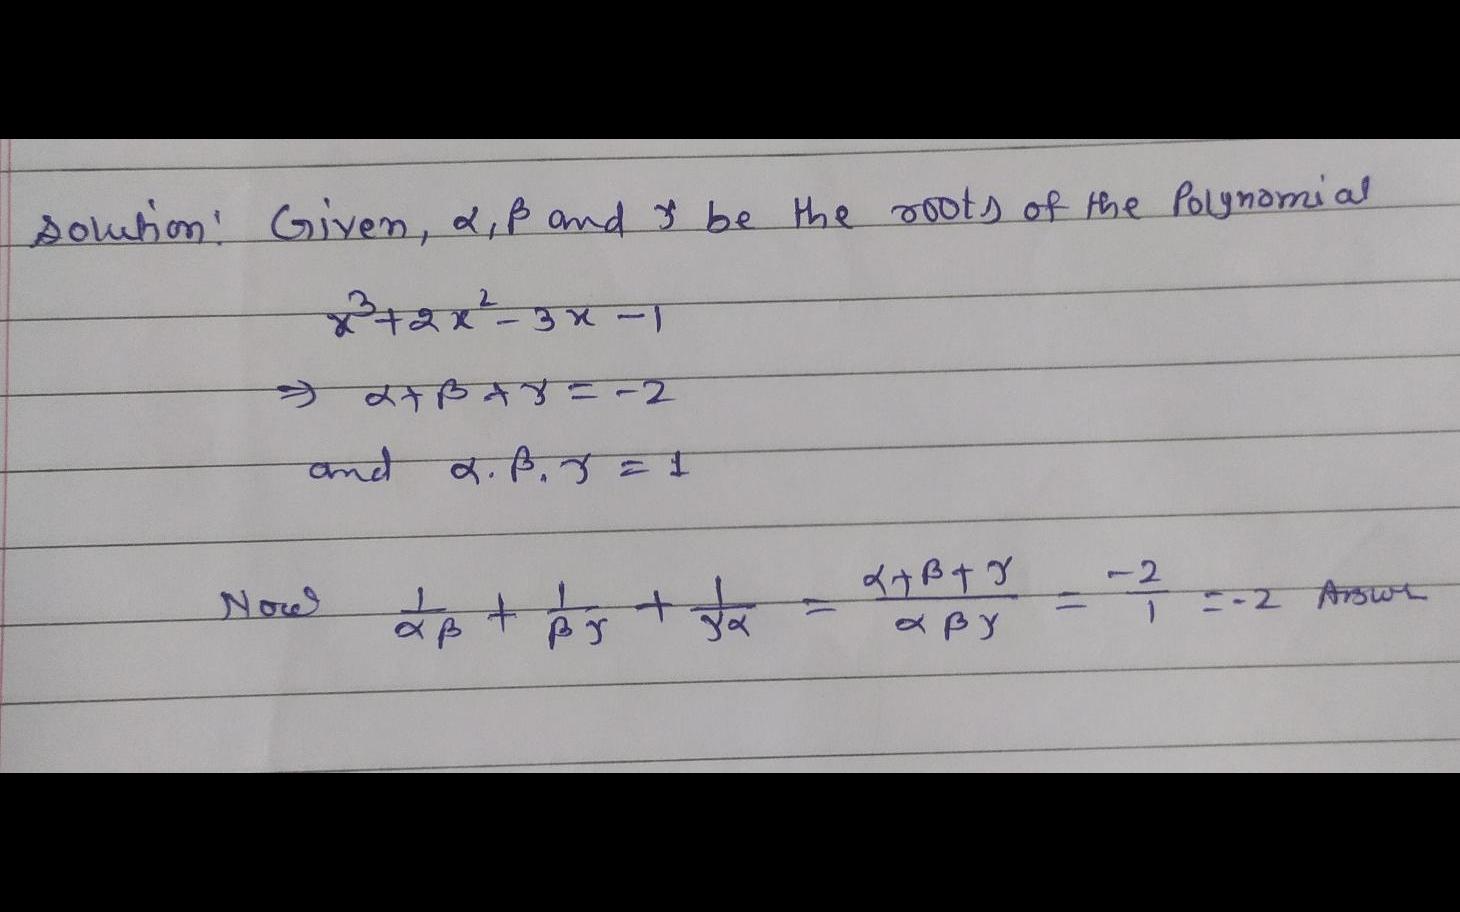 Solution: Given, α, β and γ be the roots of the Polynomial
x³ + 2x² - 3x - 1
⇒ α + β + γ = -2
and α . β . γ = 1
Now 1/αβ + 1/βγ + 1/γα = (α + β + γ)/αβγ = -2/1 = -2 Answr